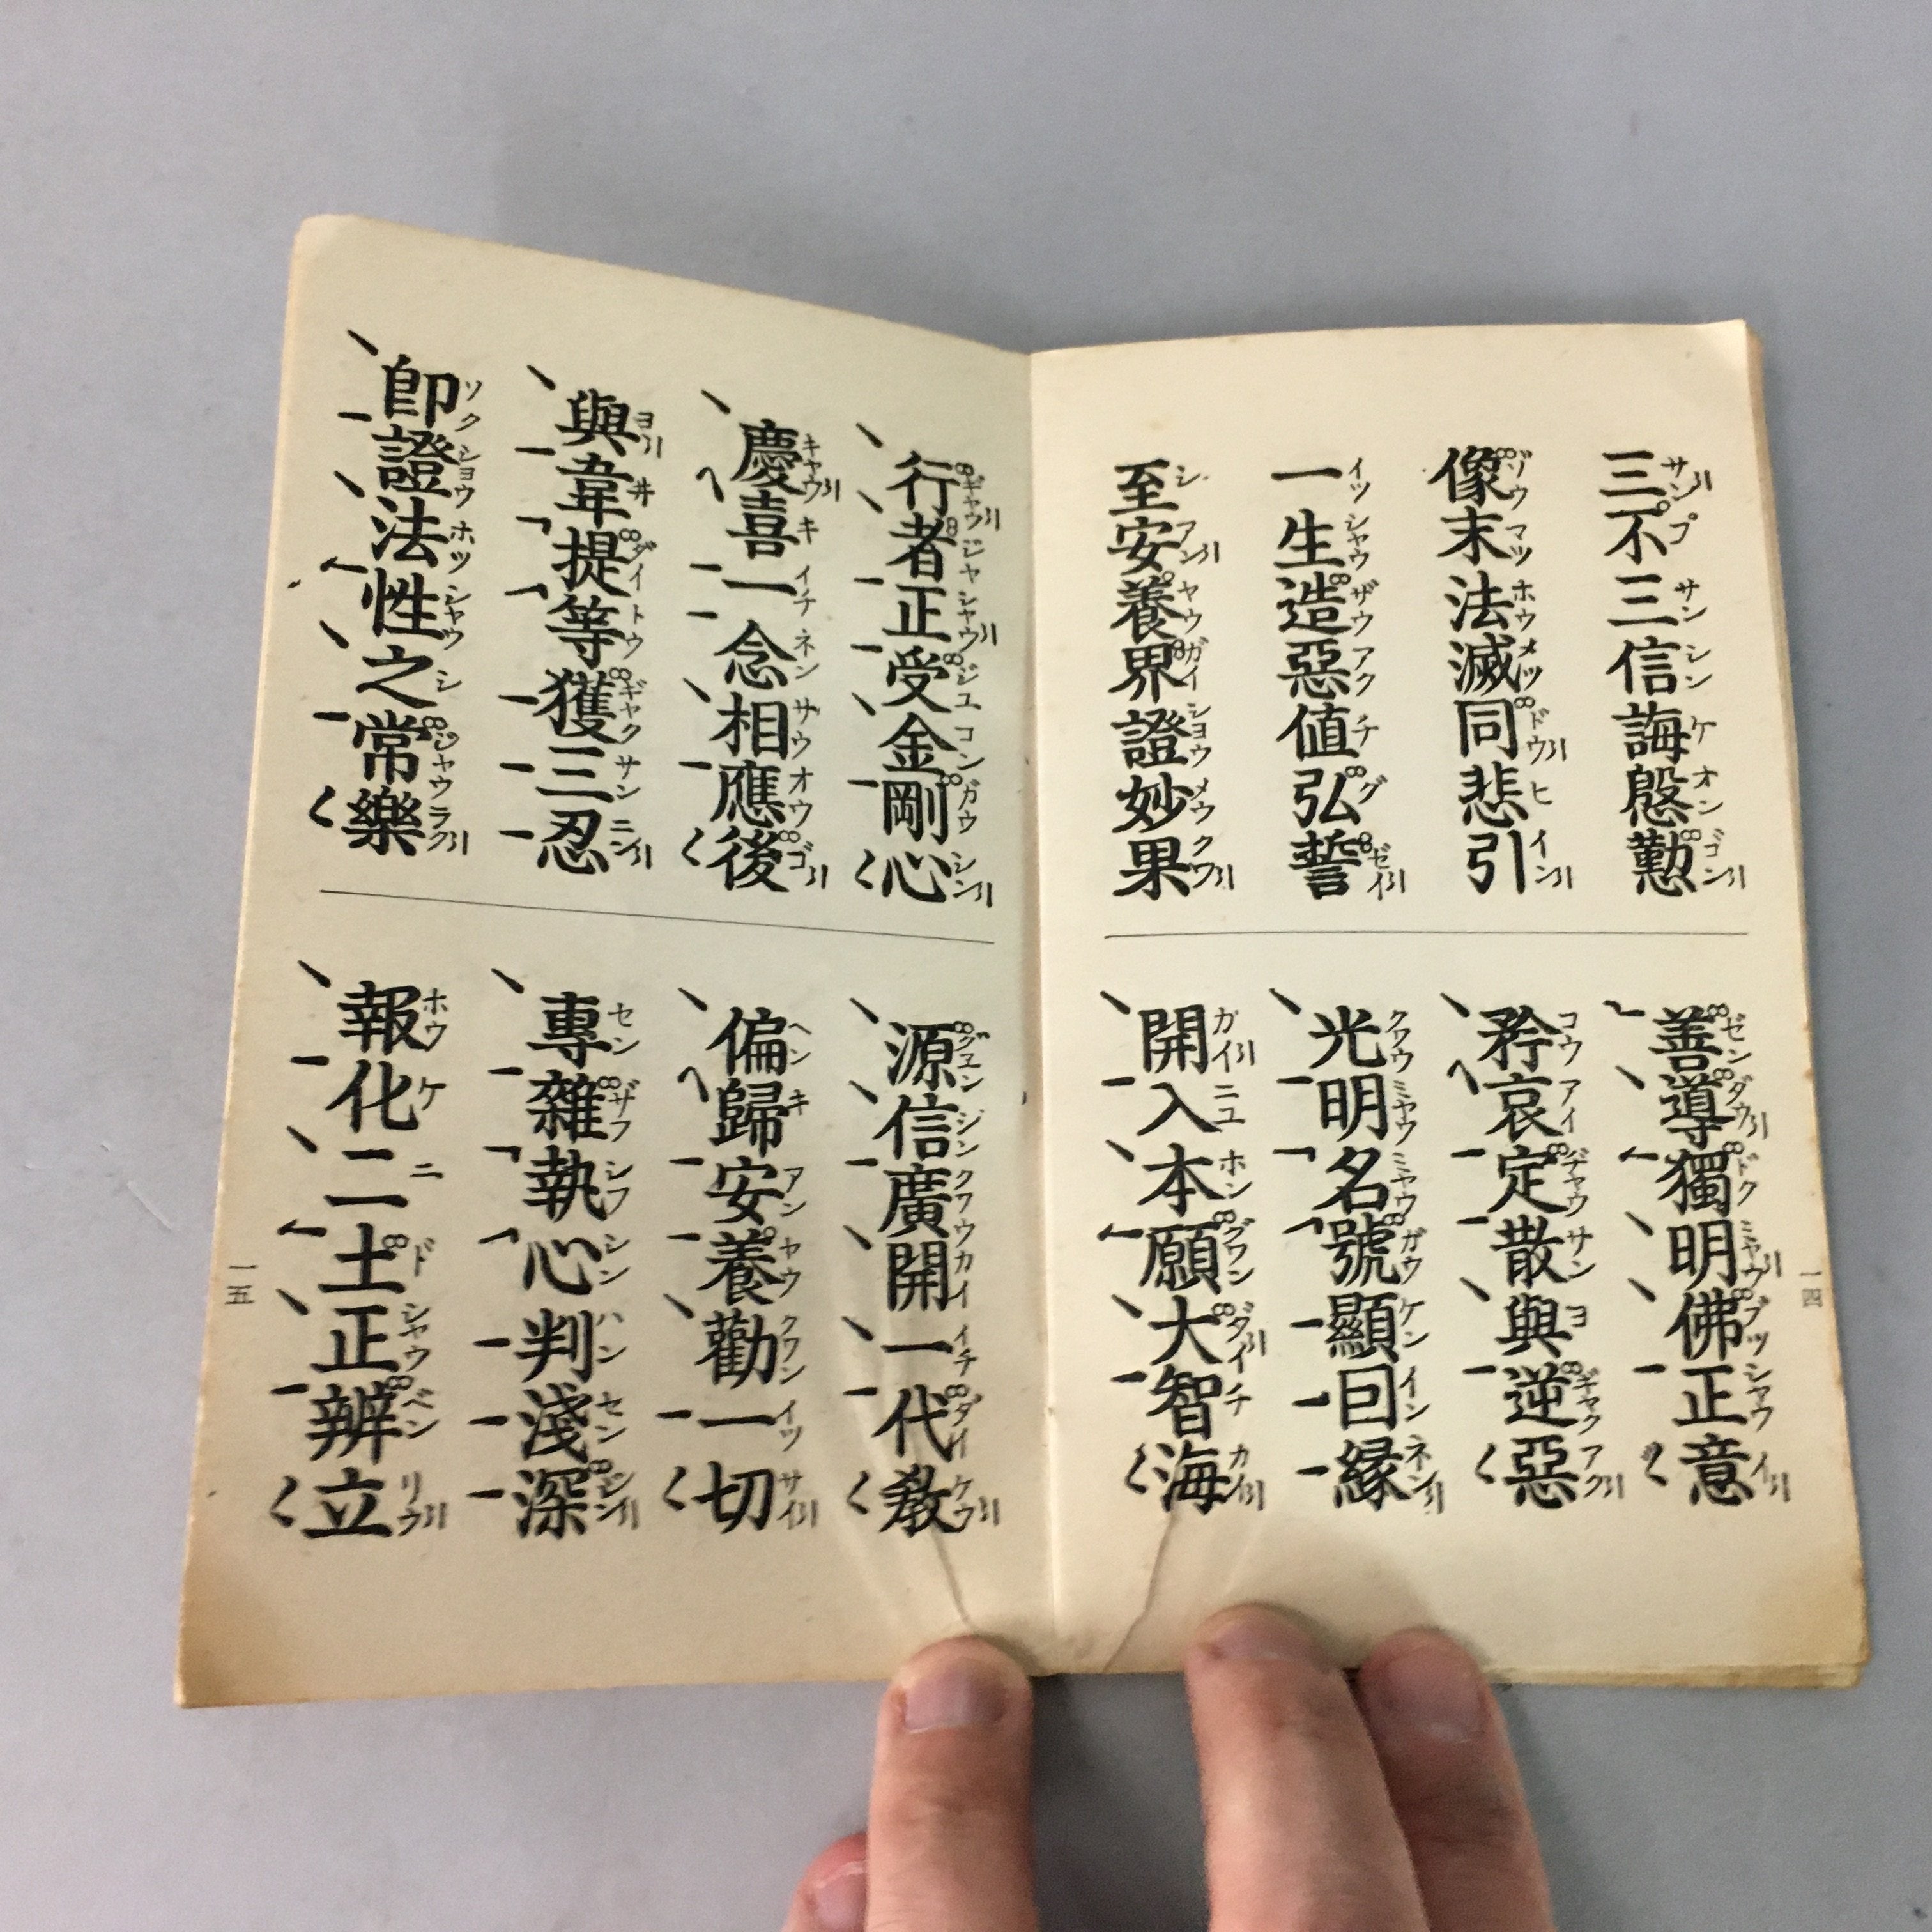 三不三信誨慇懃
像末法滅同悲引
一生造惡値弘誓
至安養界證妙果
善導獨明佛正意
矜哀定散與逆惡
光明名號顯因縁
開入本願大智海
一四
行者正受金剛心
慶喜一念相應後
與韋提等獲三忍
卽證法性之常樂
源信廣開一代教
偏歸安養勸一切
專雜執心判淺深
報化二土正辨立
一五